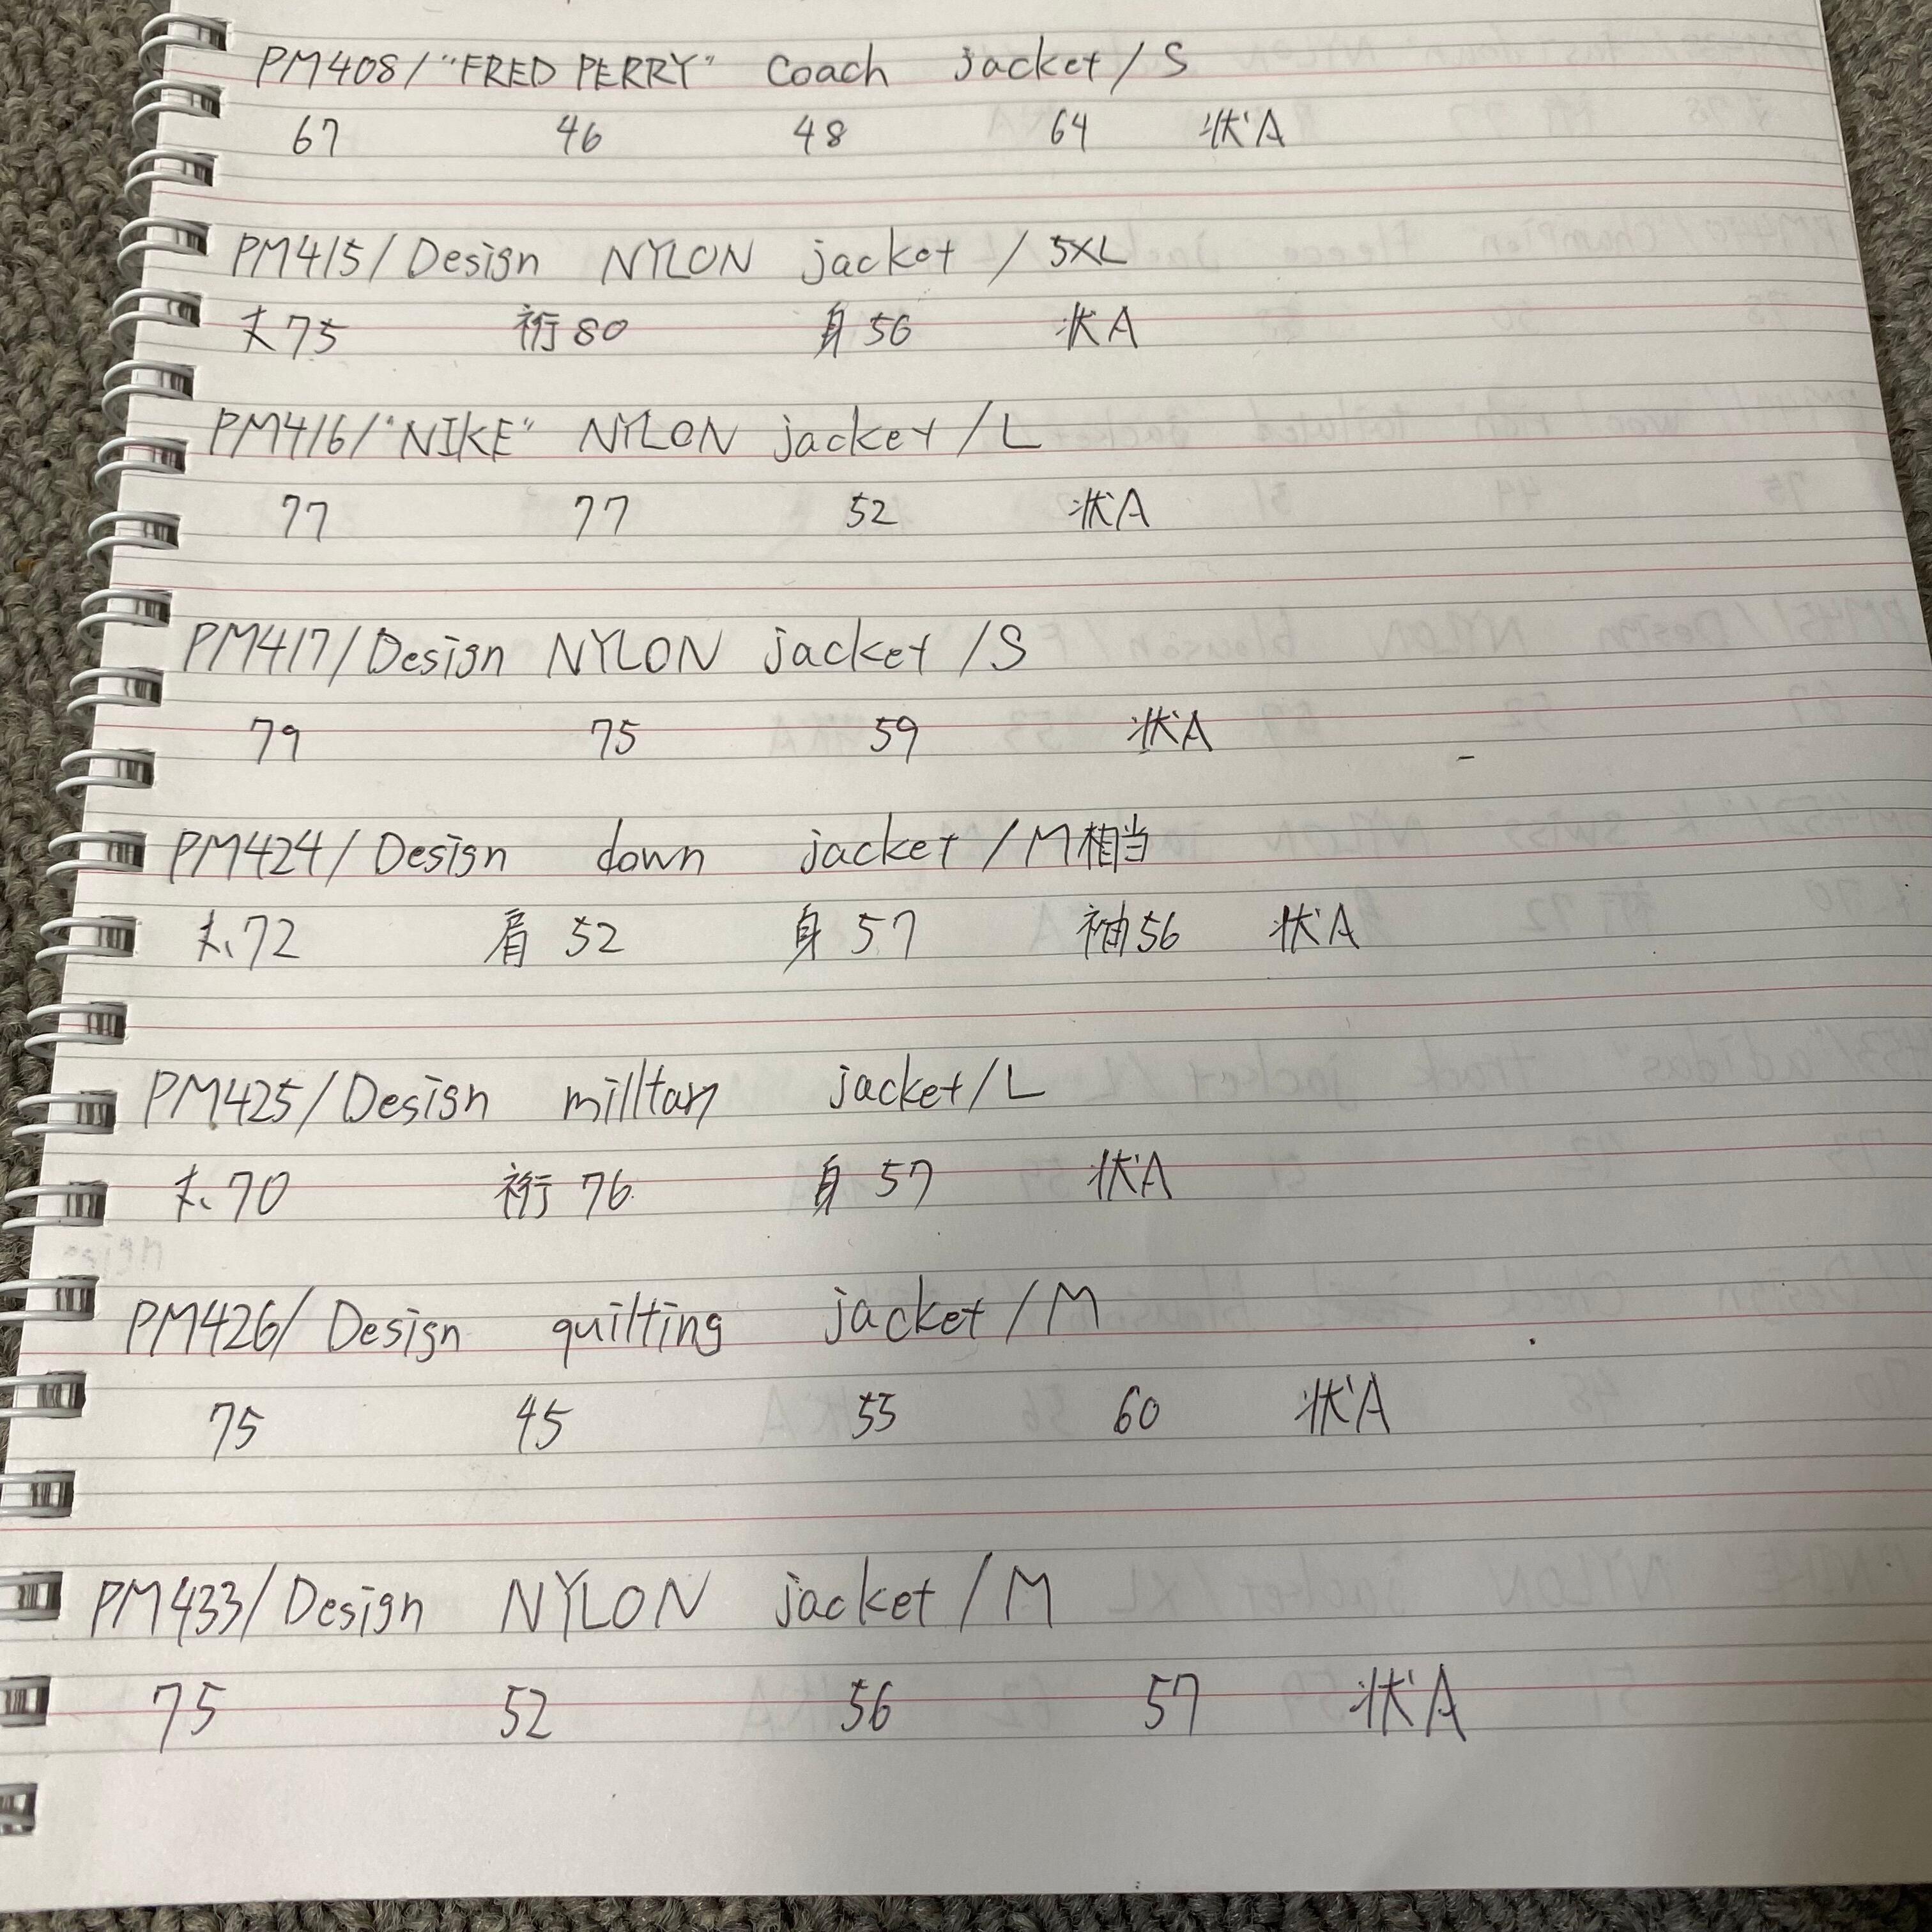 PM408/"FRED PERRY" Coach jacket/S
67 46 48 64 状A
PM415/Design NYLON jacket/5XL
丈75 裄80 身56 状A
PM416/"NIKE" NYLON jacket/L
77 77 52 状A
PM417/Design NYLON jacket/S
79 75 59 状A
PM424/Design down jacket/M相当
丈72 肩52 身57 袖56 状A
PM425/Design milltary jacket/L
丈70 裄76 身57 状A
PM426/Design quilting jacket/M
75 45 55 60 状A
PM433/Design NYLON jacket/M
75 52 56 57 状A